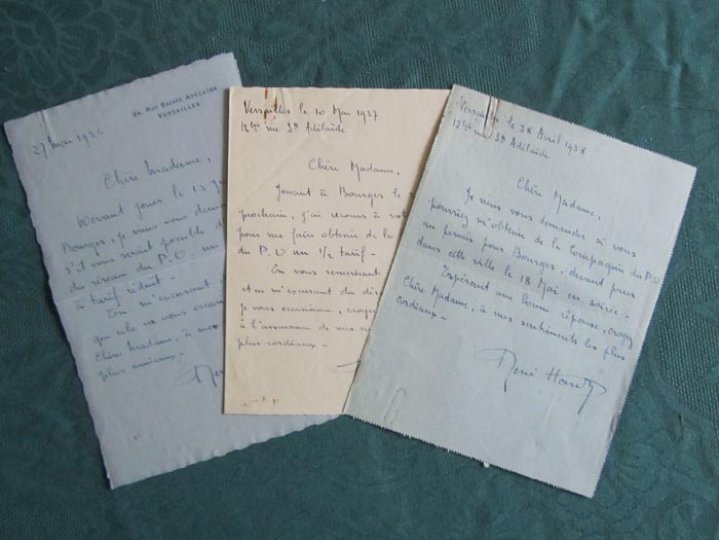 RUE SAINTE ADÉLAIDE
VERSAILLES
27 mai
Chère Madame,
Devant jouer le 13
Bourges, je vous
s'il vous serait possible
du réseau du P.O. un
à tarif réduit -
En m'excusant
que cela ne vous
Chère Madame, à mes
plus amicaux -
Versailles le 20 Mai 1937
12bis rue Ste Adélaide
Chère Madame,
Jouant à Bourges le
prochain, j'ai recours à
pour me faire obtenir de la
du P.O un 1/2 tarif -
En vous remerciant
et en m'excusant du
je vous occasionne,
à l'assurance de mes
plus cordiaux -
Versailles le 28 Avril 1938
12bis rue Ste Adélaide
Chère Madame,
Je viens vous demander si vous
pourriez m'obtenir de la Compagnie du P.O
un permis pour Bourges, devant jouer
dans cette ville le 18 Mai en soirée -
Espérant une bonne réponse, croyez
Chère Madame, à mes sentiments les plus
cordiaux -
René